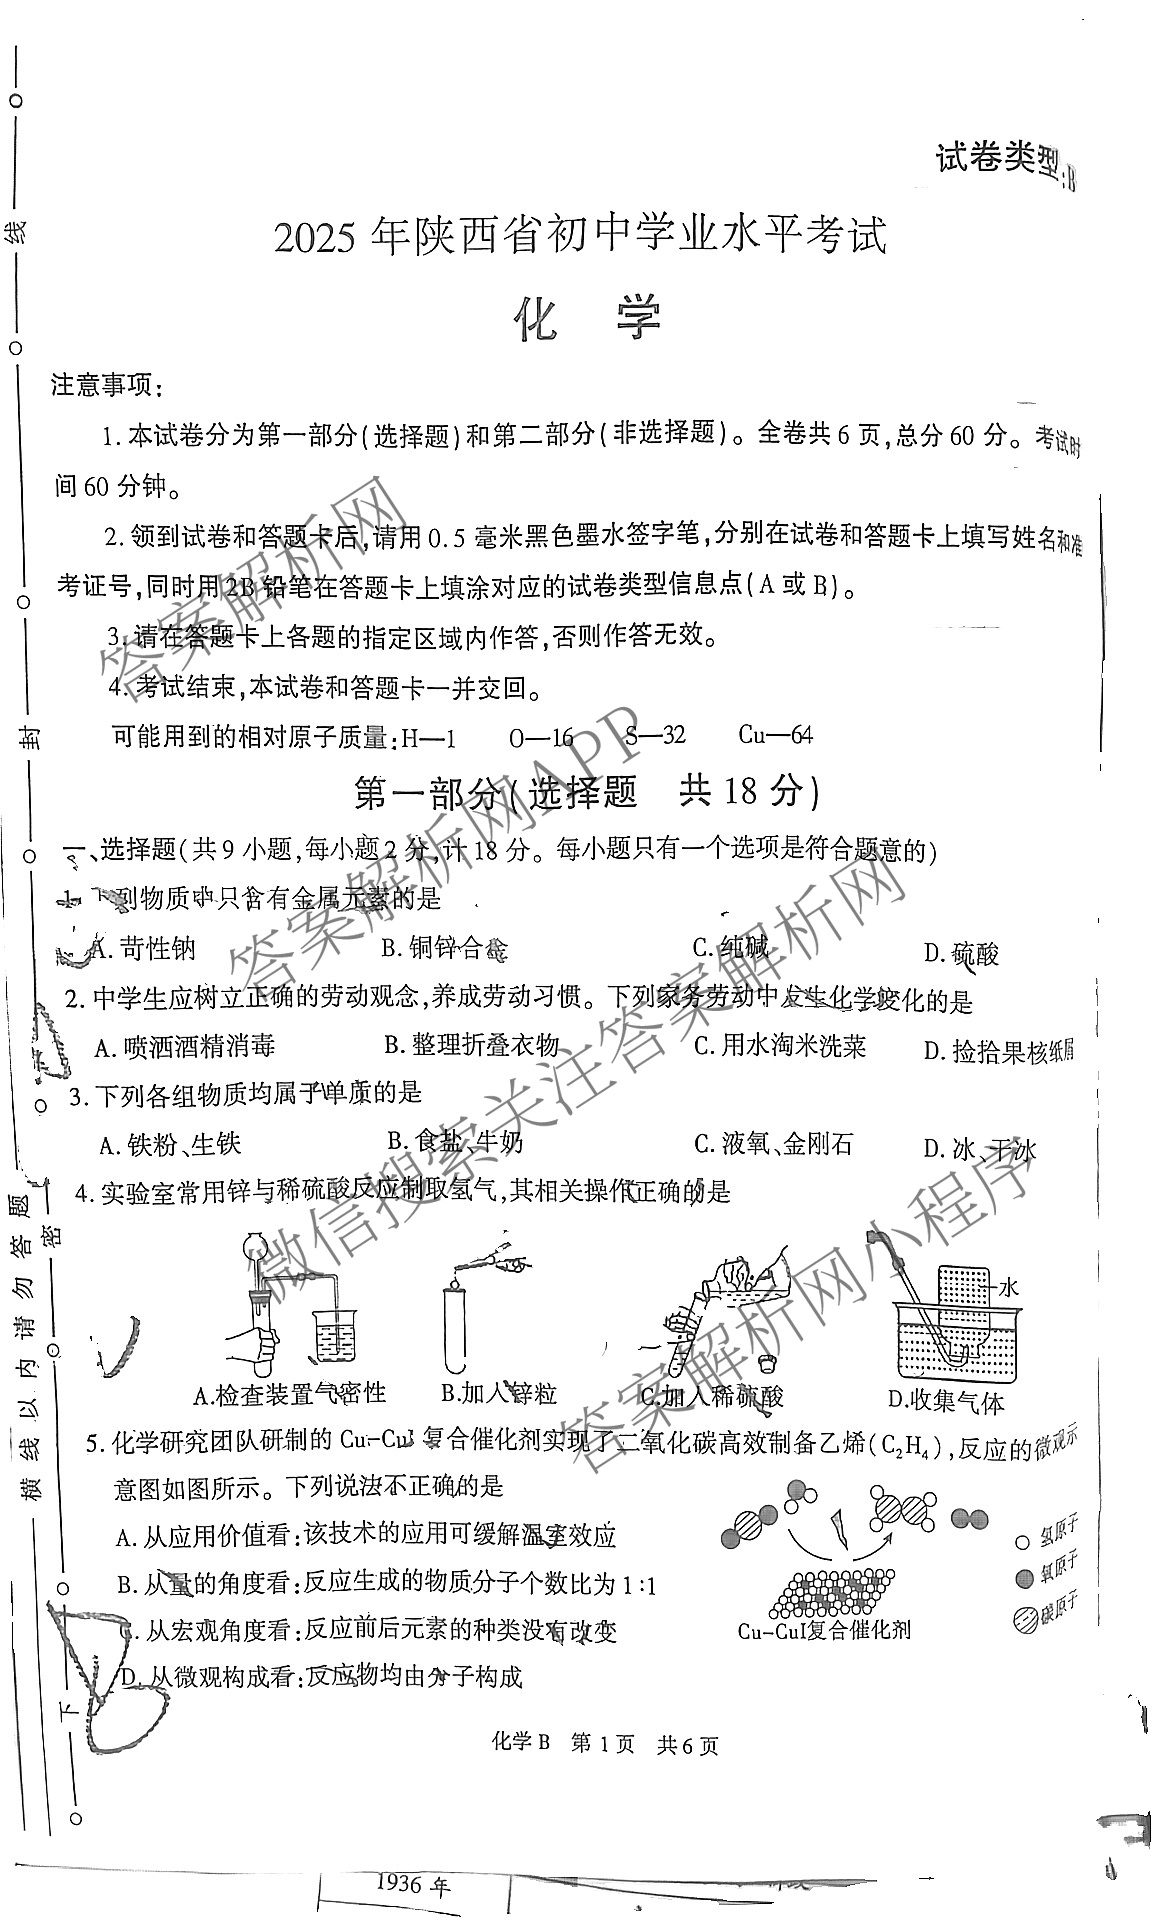 试卷类型:B
2025年陕西省初中学业水平考试
化 学
注意事项:
1.本试卷分为第一部分(选择题)和第二部分(非选择题)。全卷共6页,总分60分。考试时
间60分钟。
2.领到试卷和答题卡后,请用0.5毫米黑色墨水签字笔,分别在试卷和答题卡上填写姓名和准
考证号,同时用2B铅笔在答题卡上填涂对应的试卷类型信息点(A或B)。
3.请在答题卡上各题的指定区域内作答,否则作答无效。
4.考试结束,本试卷和答题卡一并交回。
可能用到的相对原子质量:H—1 O—16 S—32 Cu—64
第一部分(选择题 共18分)
一、选择题(共9小题,每小题2分,计18分。每小题只有一个选项是符合题意的)
下列物质中只含有金属元素的是
A.苛性钠 B.铜锌合金 C.纯碱 D.硫酸
2.中学生应树立正确的劳动观念,养成劳动习惯。下列家务劳动中发生化学变化的是
A.喷洒酒精消毒 B.整理折叠衣物 C.用水淘米洗菜 D.捡拾果核纸屑
3.下列各组物质均属于单质的是
A.铁粉、生铁 B.食盐、牛奶 C.液氧、金刚石 D.冰、干冰
4.实验室常用锌与稀硫酸反应制取氢气,其相关操作正确的是
水
A.检查装置气密性 B.加入锌粒 C.加入稀硫酸 D.收集气体
5.化学研究团队研制的Cu-CuI复合催化剂实现了二氧化碳高效制备乙烯(C₂H₄),反应的微观示
意图如图所示。下列说法不正确的是
A.从应用价值看:该技术的应用可缓解温室效应
B.从量的角度看:反应生成的物质分子个数比为1:1
C.从宏观角度看:反应前后元素的种类没有改变
D.从微观构成看:反应物均由分子构成
氢原子
氧原子
碳原子
Cu-CuI复合催化剂
化学B 第1页 共6页
1936年
横线以内请勿答题
线
封
密
下
答案解析网
答案解析网APP
微信搜索关注答案解析网
答案解析网小程序